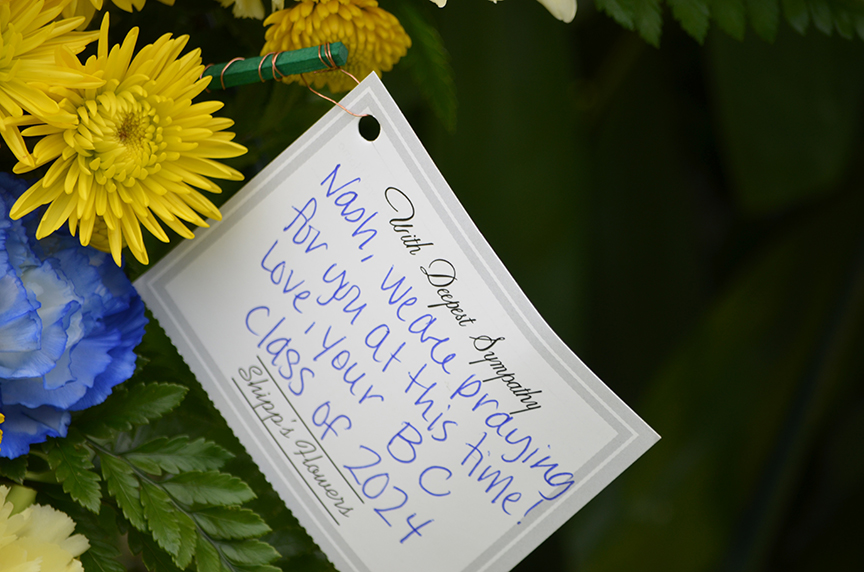 With Deepest Sympathy
Nash, we are praying
for you at this time!
Love, your BC
Class of 2024
Shipp's Flowers